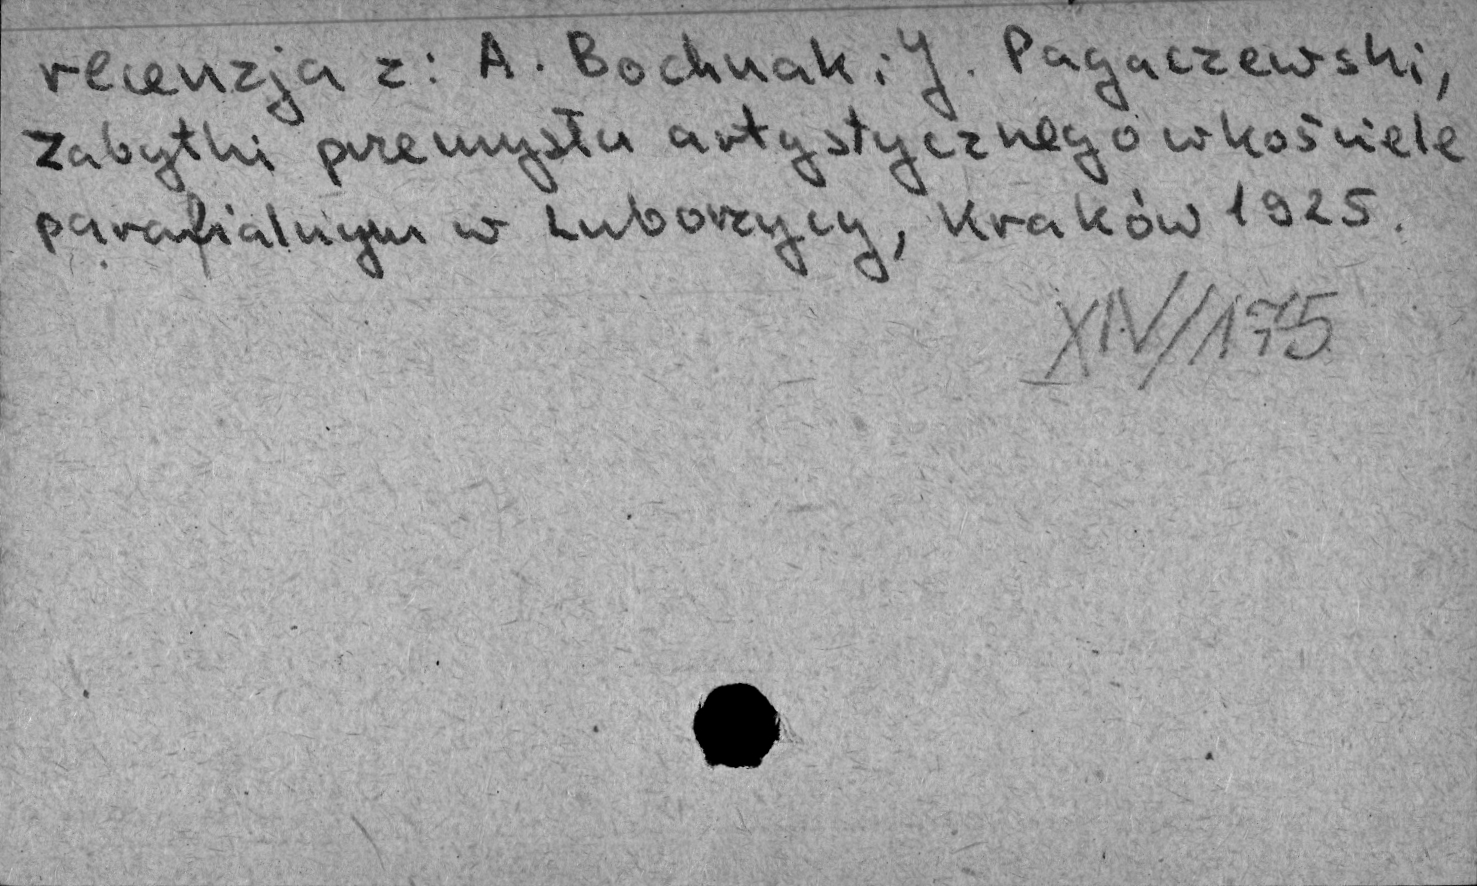 recenzja z: A. Bochnak i J. Pagaczewski,
Zabytki przemysłu artystycznego w kościele
parafialnym w Luborzycy, Kraków 1925.
XIV/175